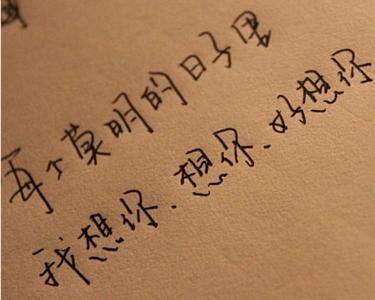 每个莫明的日子里
我想你.想你.好想你